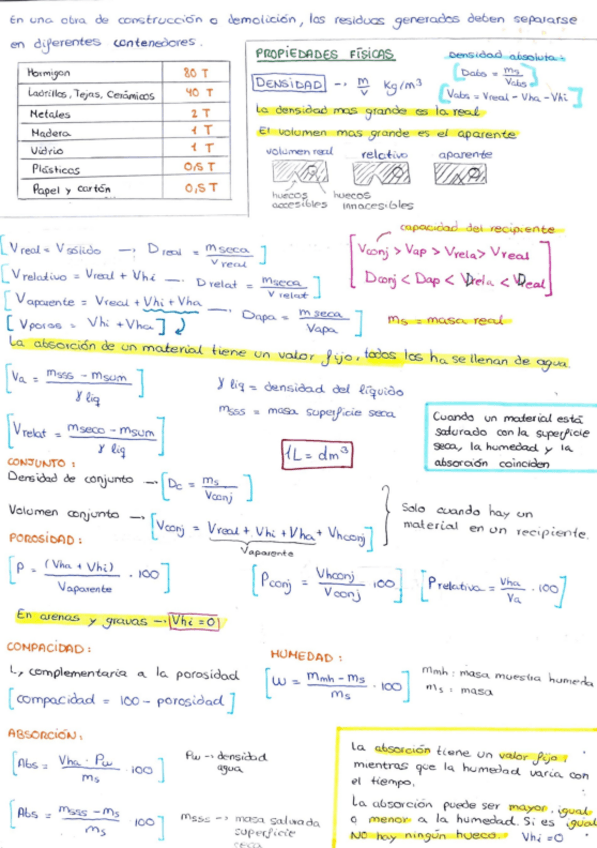 En una obra de construcción o demolición, los residuos generados deben separarse
en diferentes contenedores.
Hormigon 80 T
Ladrillos, Tejas, Cerámicos 40 T
Metales 2 T
Madera 1 T
Vidrio 1 T
Plásticos 0,5 T
Papel y cartón 0,5 T
PROPIEDADES FÍSICAS
Densidad absoluta:
DENSIDAD → m/v Kg/m³
[Dabs = ms/Vabs]
[Vabs = Vreal - Vha - Vhi]
La densidad mas grande es la real
El volumen mas grande es el aparente
volumen real relativo aparente
huecos accesibles
huecos innacesibles
capacidad del recipiente
[Vreal = Vsólido → Dreal = mseca/Vreal]
[Vrelativo = Vreal + Vhi → Drelat = mseca/Vrelat]
[Vaparente = Vreal + Vhi + Vha → Dapa = mseca/Vapa]
[Vporos = Vhi + Vha]
[Vconj > Vap > Vrela > Vreal
Dconj < Dap < Drela < Dreal]
ms = masa real
La absorción de un material tiene un valor fijo, todos los ha se llenan de agua
[Va = msss - msum/γ liq]
γ liq = densidad del líquido
msss = masa superficie seca
[Vrelat = mseco - msum/γ liq]
1L = dm³
Cuando un material está
saturado con la superficie
seca, la humedad y la
absorción coinciden
CONJUNTO:
Densidad de conjunto → [Dc = ms/Vconj]
Volumen conjunto → [Vconj = Vreal + Vhi + Vha + Vhconj]
Vaparente
Solo cuando hay un
material en un recipiente.
POROSIDAD:
[P = (Vha + Vhi)/Vaparente · 100]
[Pconj = Vhconj/Vconj · 100]
[Prelativa = Vha/Va · 100]
En arenas y gravas → Vhi = 0
COMPACIDAD:
↳ complementaria a la porosidad
[compacidad = 100 - porosidad]
HUMEDAD:
[W = mmh - ms/ms · 100]
mmh: masa muestra humeda
ms: masa
ABSORCIÓN:
[Abs = Vha · Pw/ms · 100]
Pw → densidad
agua
[Abs = msss - ms/ms · 100]
msss → masa saturada
superficie
seca
La absorción tiene un valor fijo,
mientras que la humedad varía con
el tiempo.
La absorción puede ser mayor, igual
o menor a la humedad. Si es igual
NO hay ningún hueco. Vhi = 0